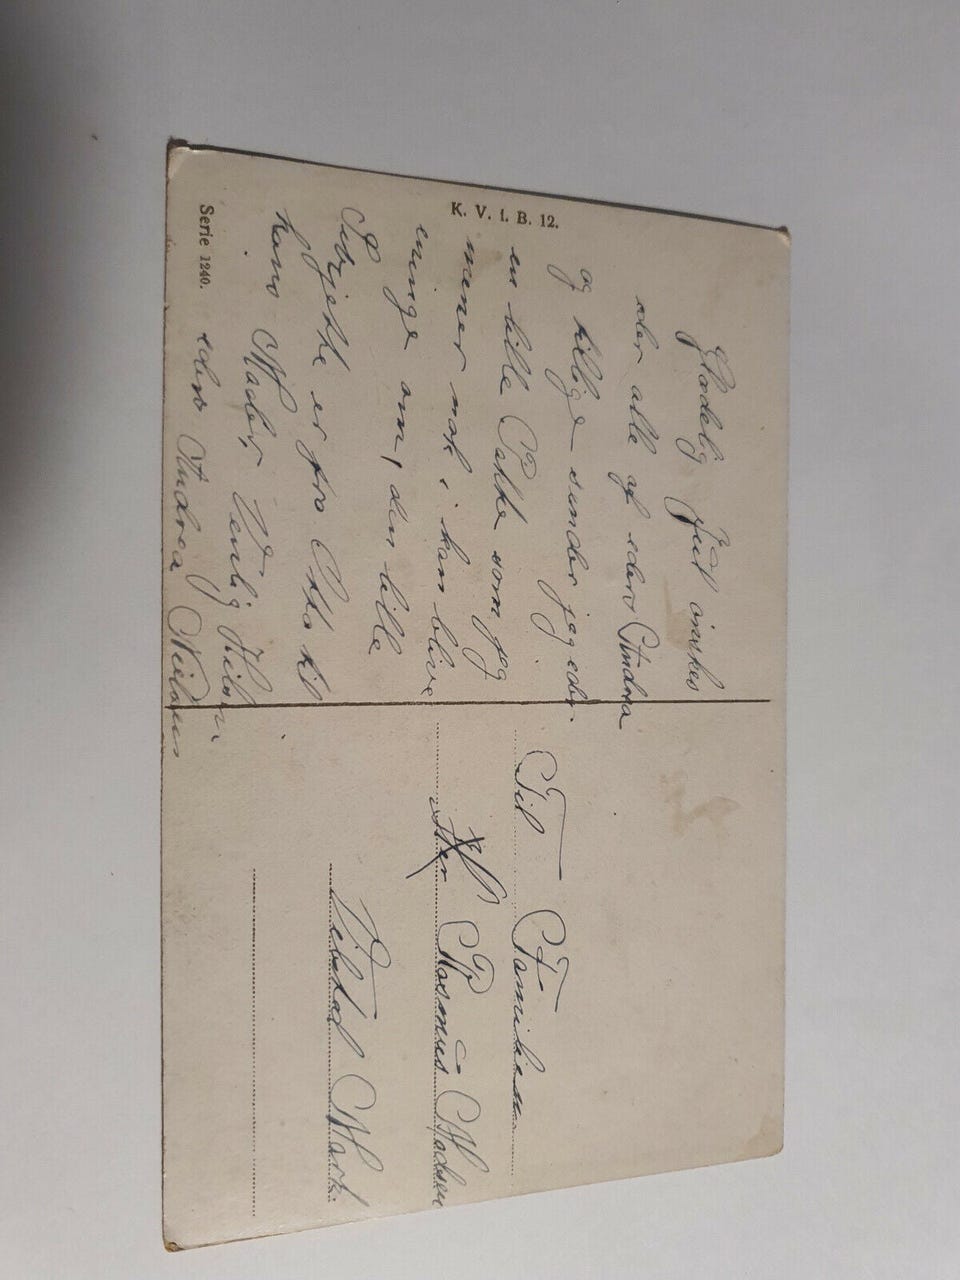 Glædelig Jul ønskes
eder alle af eders Andrea
og tillige sender jeg eder
en lille Pakke som jeg
mener nok i kan blive
eninge om, den lille
er fra Otto til
hans Moder, Venlig Hilsen
eders Andrea Nielsen
K. V. i. B. 12.
Serie 1240.
Til Familien
Rasmus Madsen
Vibtad Mark